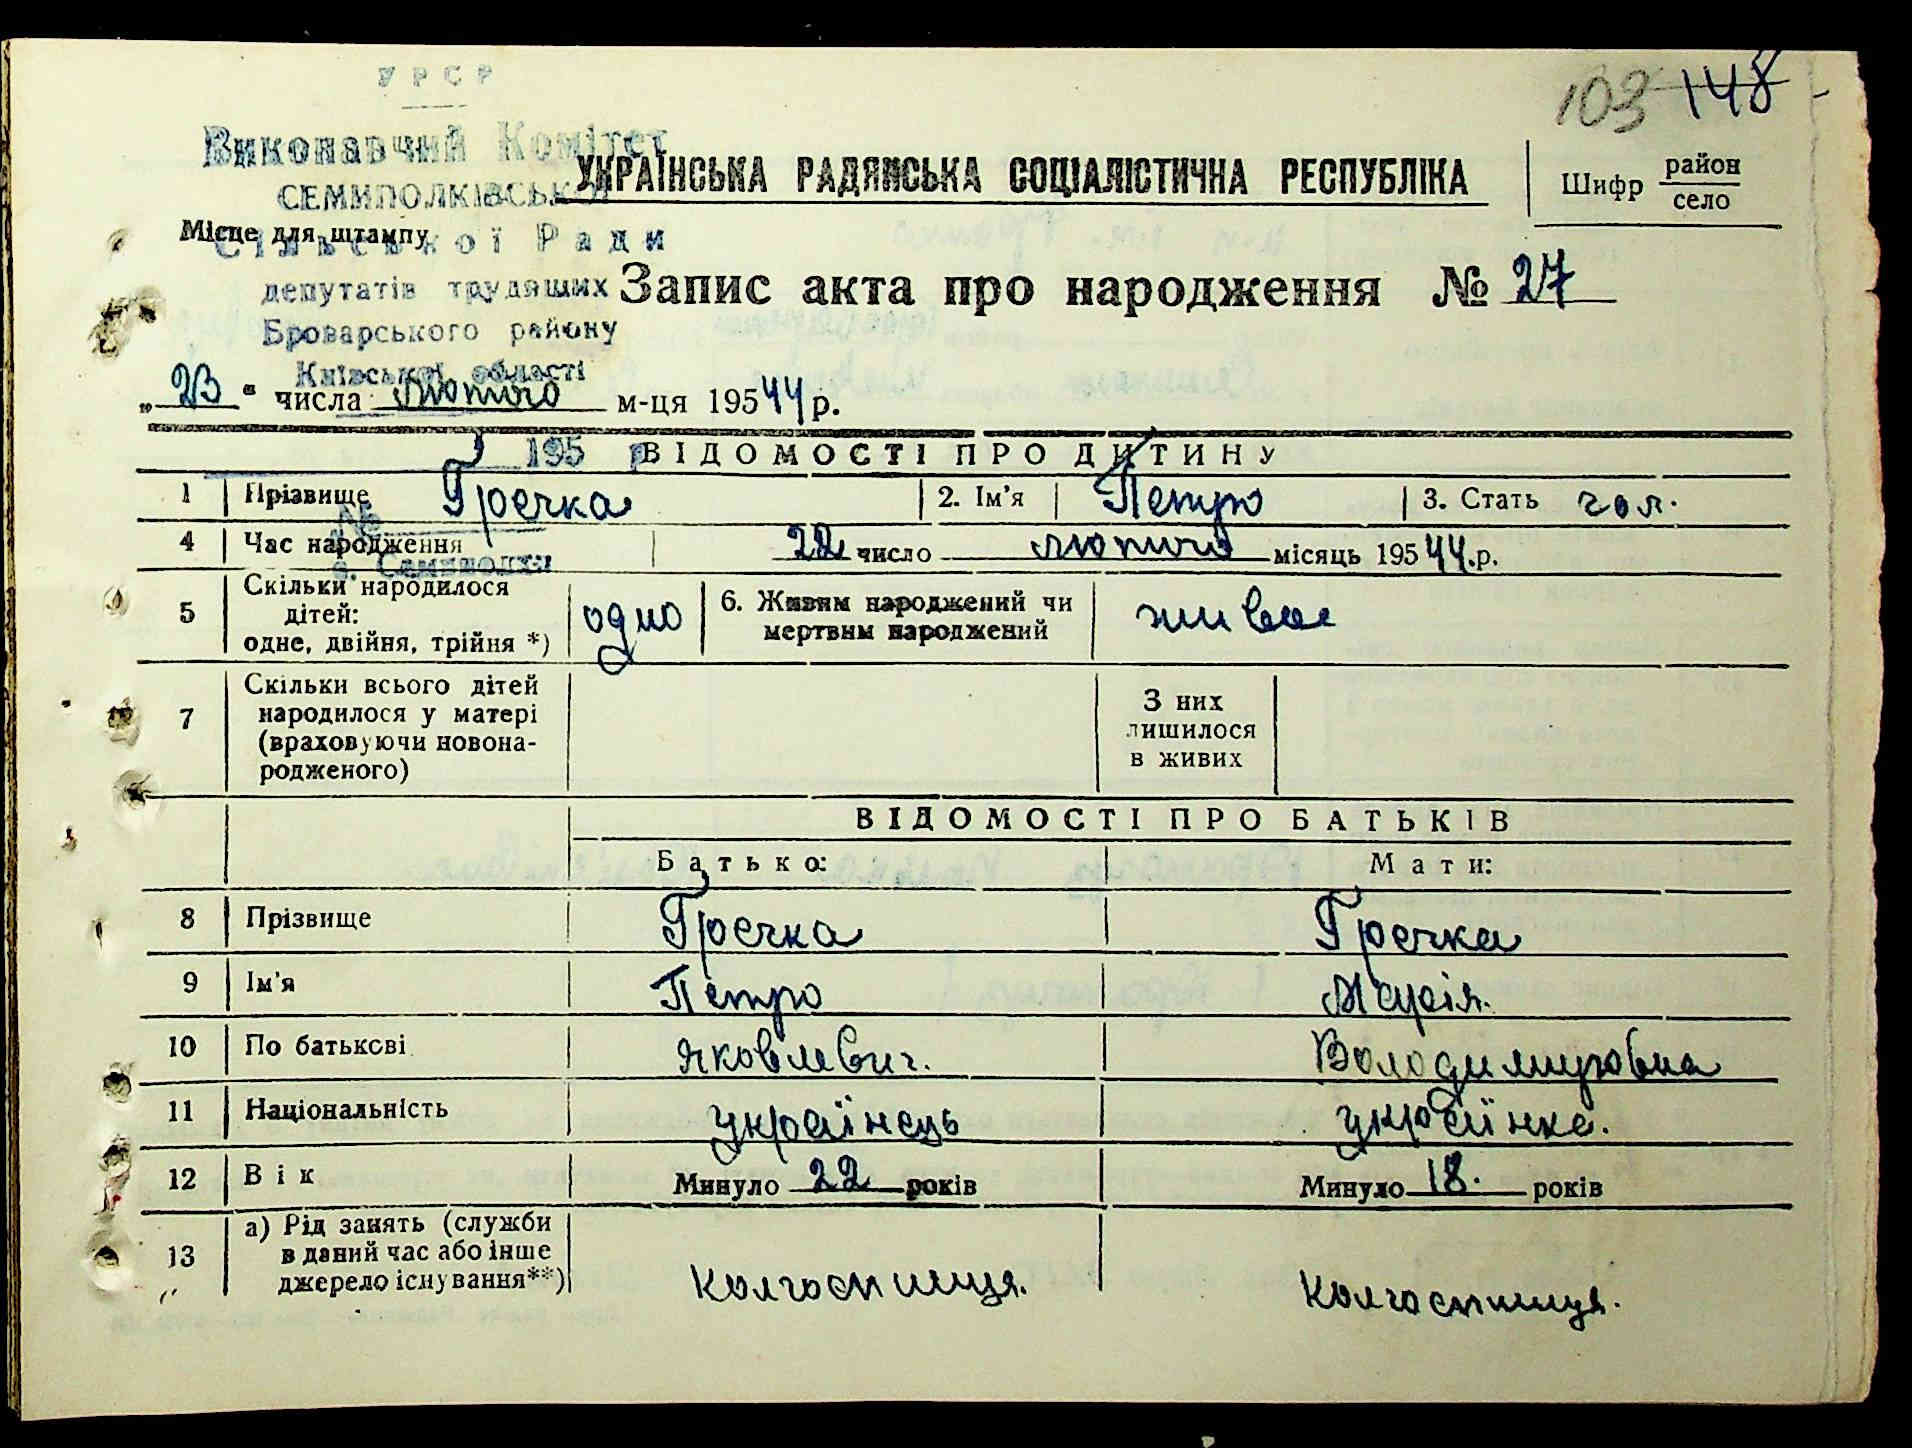 УРСР
103 148
Виконавчий Комітет
УКРАЇНСЬКА РАДЯНСЬКА СОЦІАЛІСТИЧНА РЕСПУБЛІКА
Шифр район
село
СЕМИПОЛКІВСЬКОЇ
Місце для штампу
Сільської Ради
депутатів трудящих
Запис акта про народження № 27
Броварського району
Київської області
„23" числа лютого м-ця 19544р.
195 р
ВІДОМОСТІ ПРО ДИТИНУ
1 Прізвище Гречка 2. Ім'я Петро 3. Стать чол.
№
4 Час народження 22 число лютого місяць 19544.р.
с. Семиполки
5 Скільки народилося
дітей:
одне, двійня, трійня *) одно 6. Живим народжений чи
мертвим народжений живим
7 Скільки всього дітей
народилося у матері
(враховуючи новона-
родженого)
З них
лишилося
в живих
ВІДОМОСТІ ПРО БАТЬКІВ
Батько: Мати:
8 Прізвище Гречка Гречка
9 Ім'я Петро Марія.
10 По батькові Яковлевич. Володимировна
11 Національність українець українка.
12 Вік Минуло 22 років Минуло 18. років
13 а) Рід занять (служби
в даний час або інше
джерело існування**)
колгоспниця. колгоспниця.